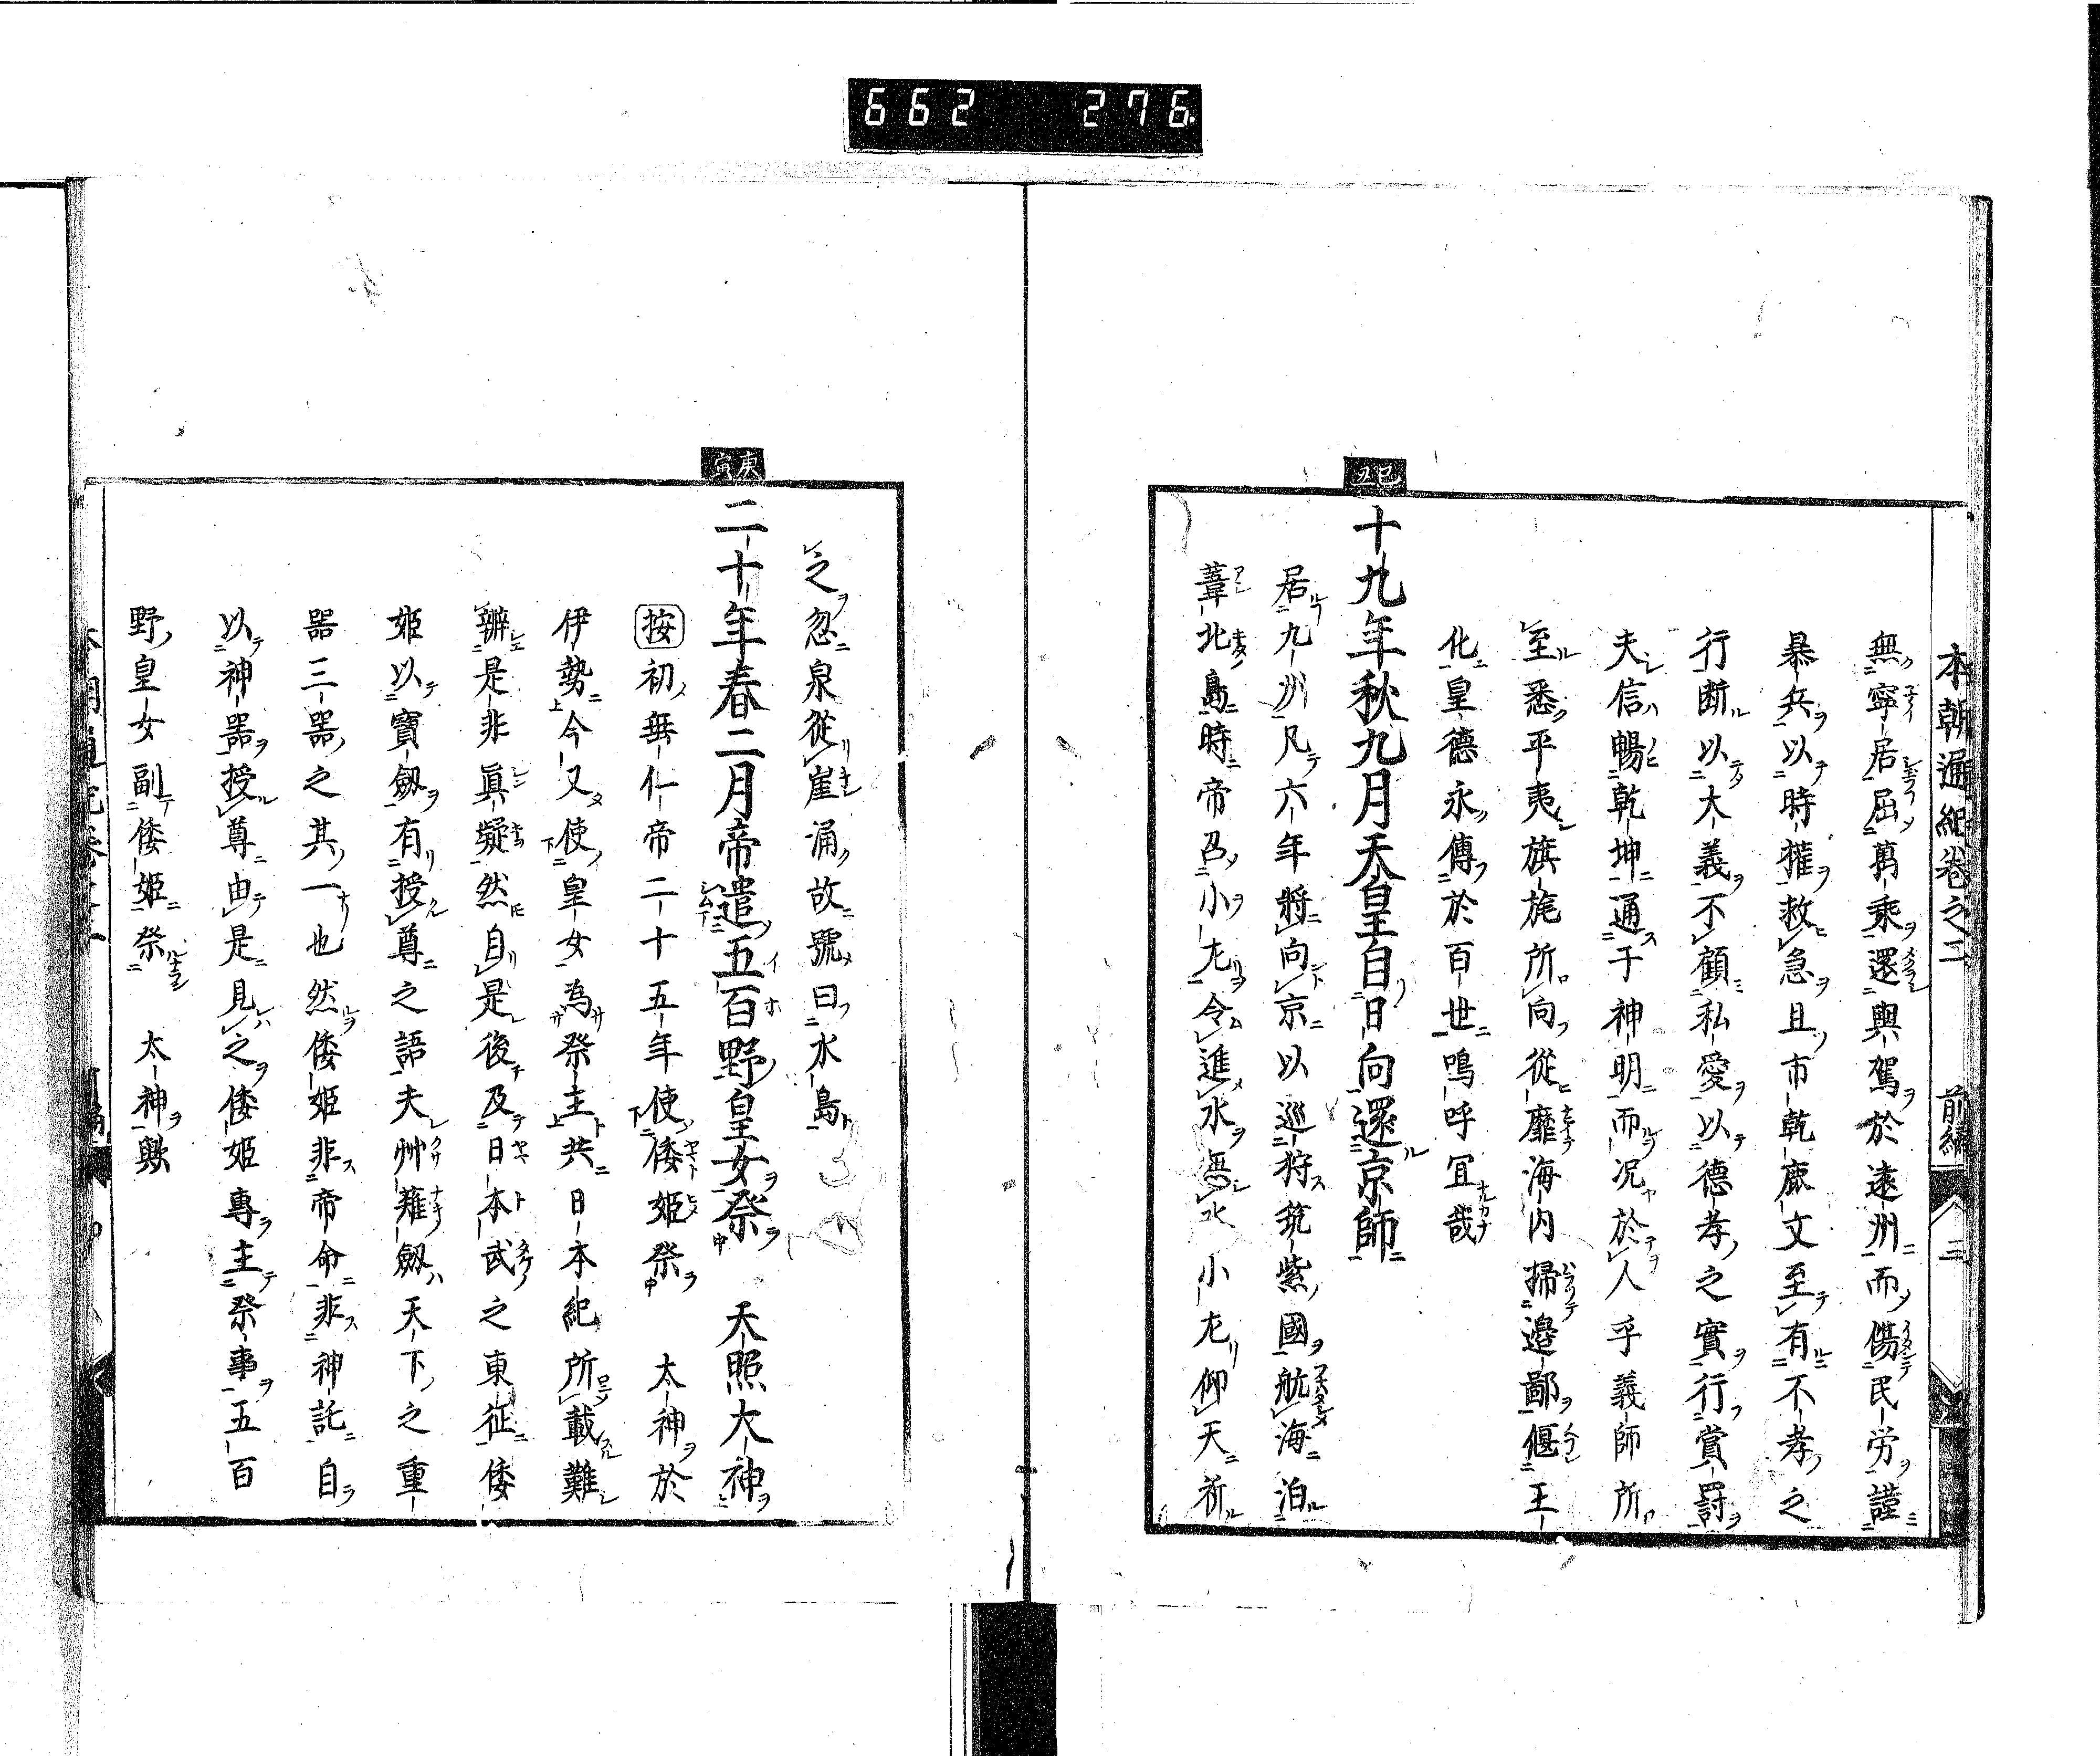 662 276
本朝通紀卷之二 前編 三
無寧居屈萬乘還輿駕於遠州而傷民労謹
暴兵以時權救急且市乾鹿文至有不孝之
行断以大義不顧私愛以德孝之實行賞罰
夫信暢乾坤通于神明而况於人乎義師所
至悉平夷旗旄所向從靡海内掃邉鄙偃王
化皇德永傳於百世嗚呼冝哉
己丑
十九年秋九月天皇自日向還京師
居九州凡六年將向京以巡狩筑紫國航海泊
葦北島時帝召小左令進水無水小左仰天祈
之忽泉從崖涌故號曰水島
庚寅
二十年春二月帝遣五百野皇女祭 天照大神
按初垂仁帝二十五年使倭姫祭 太神於
伊勢今又使皇女為祭主共日本紀所載難
辨是非眞凝然自是後及日本武之東征倭
姫以寶劔有授尊之語夫艸薙劔天下之重
器三器之其一也然倭姫非帝命非神託自
以神器授尊由是見之倭姫專主祭事五百
野皇女副倭姫祭 太神歟